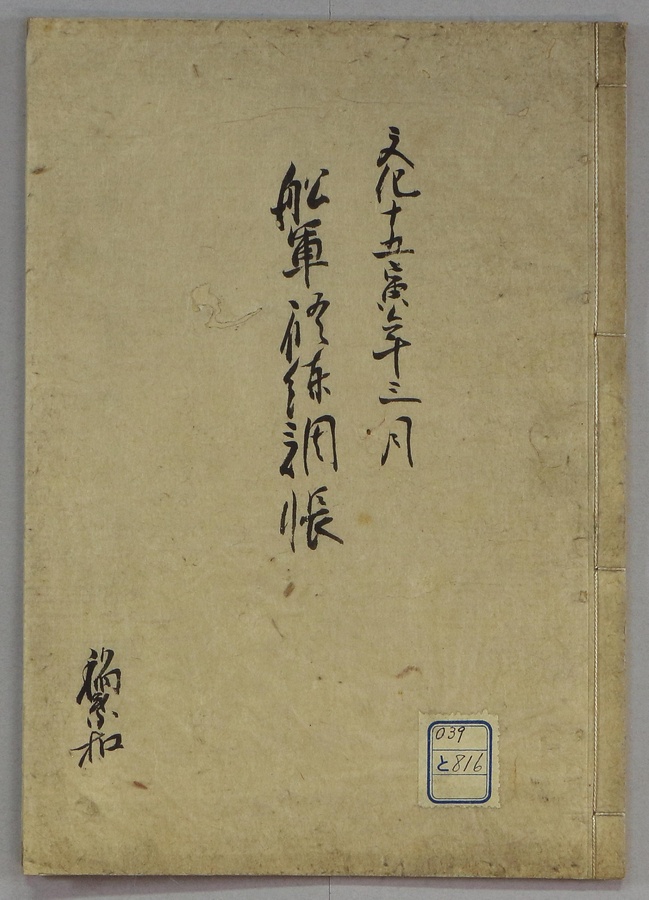 文化十五寅年三月
船軍修練調帳
039
と816